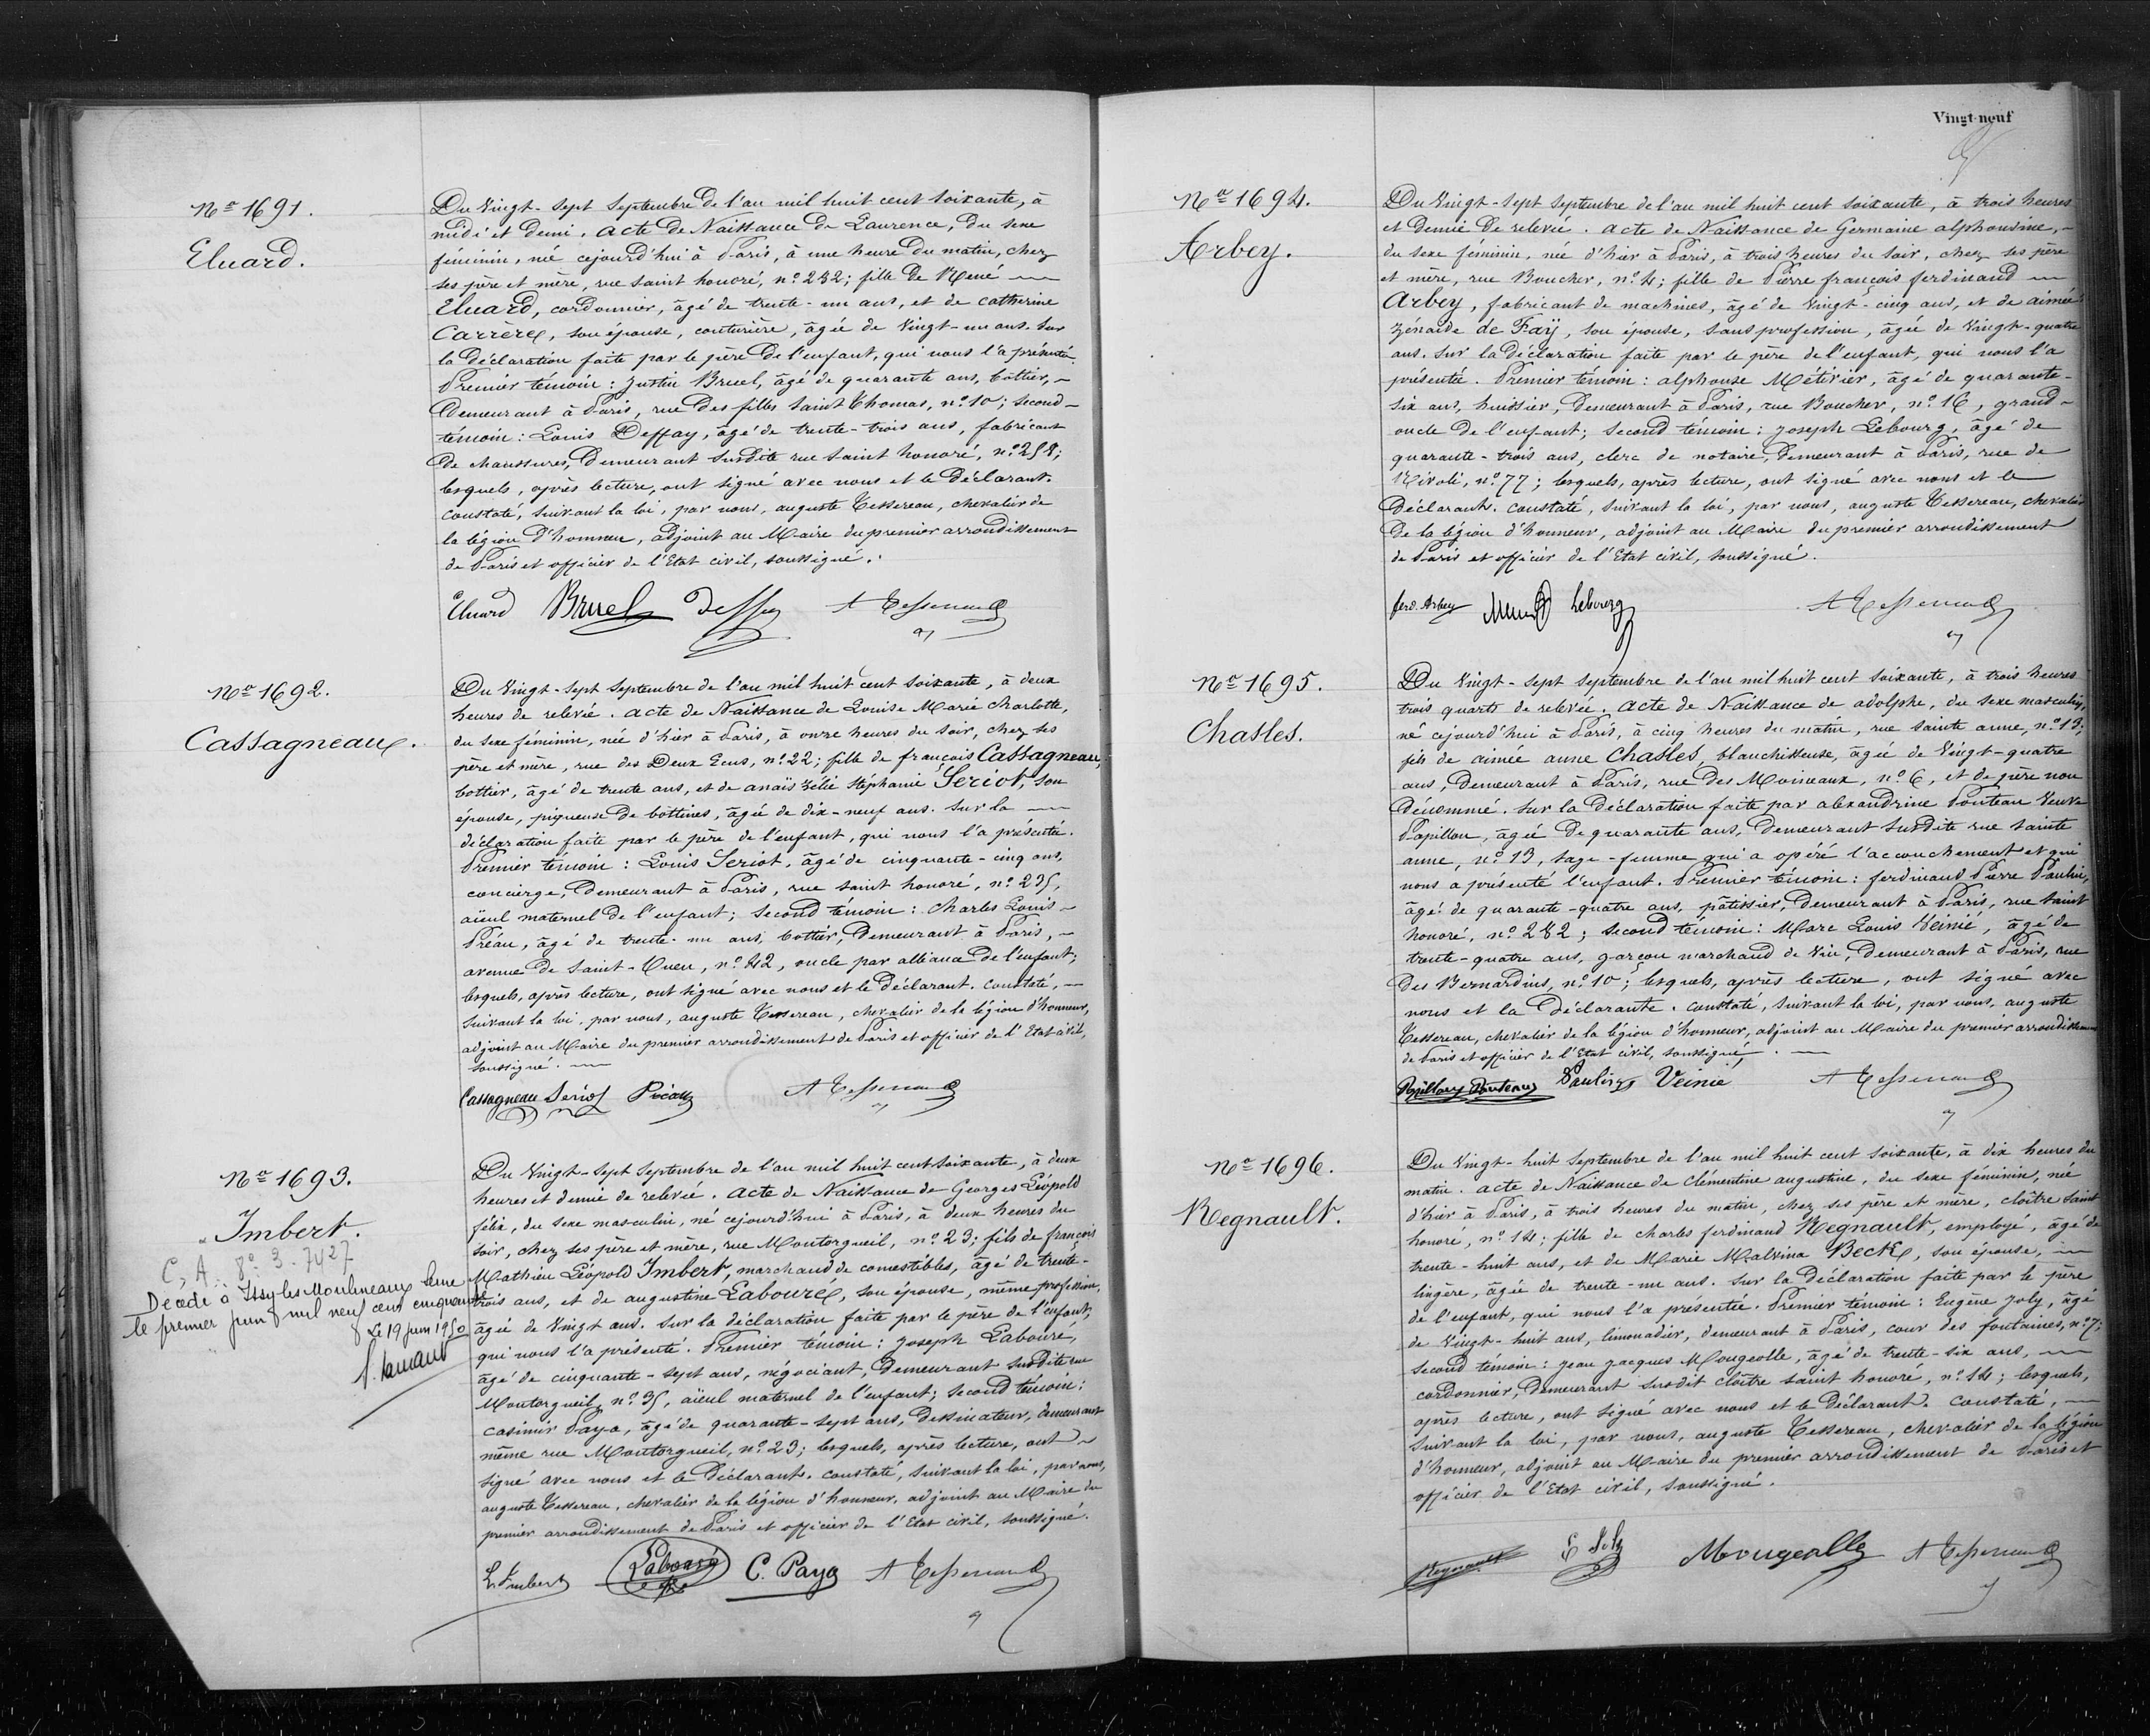 Nº 1691.
Eluard.
Du Vingt-sept Septembre de l'an mil huit cent soixante, à
midi et demi. Acte de Naissance de Laurence, du sexe
feminin, née cejourd'hui à Paris, à une heure du matin, chez
ses père et mère, rue saint honoré, nº 232; fille de René
Eluard, cordonnier, âgé de trente-un ans, et de catherine
Carrère, son épouse, couturière, âgée de Vingt-un ans. Sur
la déclaration faite par le père de l'enfant, qui nous l'a présenté.
Premier témoin: Justin Bruel, âgé de quarante ans, bottier,
Demeurant à Paris, rue des filles Saint Thomas, nº 10; second
témoin: Louis Deffay, âgé de trente-trois ans, fabricant
de chaussures, Demeurant susdite rue saint honoré, nº 258;
lesquels, après lecture, ont signé avec nous et le Déclarant.
constaté, suivant la loi, par nous, auguste Tessereau, chevalier de
la légion d'honneur, adjoint au Maire du premier arrondissement
de Paris et officier de l'Etat civil, soussigné.
Eluard Bruel Deffay A Tessereau
Nº 1692.
Cassagneau.
Du Vingt-sept Septembre de l'an mil huit cent soixante, à deux
heures de relevée. acte de Naissance de Louise Marie charlotte,
du sexe féminin, née d'hier à Paris, à onze heures du soir, chez ses
père et mère, rue des Deux Ecus, nº 22; fille de françois Cassagneau,
bottier, âgé de trente ans, et de anaïs Zélie Stéphanie Sériot, son
épouse, piqueuse de bottines, âgée de dix-neuf ans. Sur la
déclaration faite par le père de l'enfant, qui nous l'a présenté.
Premier témoin: Louis Seriot, âgé de cinquante-cinq ans,
concierge, Demeurant à Paris, rue saint honoré, nº 235,
aïeul maternel de l'enfant; second témoin: charles Louis
Préau, âgé de trente-un ans, bottier, Demeurant à Paris,
avenue de Saint-Ouen, nº 42, oncle par alliance de l'enfant;
lesquels, après lecture, ont signé avec nous et le déclarant. constaté,
suivant la loi, par nous, auguste Tessereau, chevalier de la légion d'honneur,
adjoint au Maire du premier arrondissement de Paris et officier de l'Etat civil,
soussigné.
Cassagneau Seriot Préau A Tessereau
Nº 1693.
Imbert.
C. A. 8º 3. 7427
Décédé à Issy les Moulineaux Seine
le premier juin mil neuf cent cinquante
Le 19 juin 1950
Du Vingt-sept Septembre de l'an mil huit cent soixante, à deux
heures et demie de relevée. acte de Naissance de Georges Léopold
félix, du sexe masculin, né cejourd'hui à Paris, à deux heures du
soir, chez ses père et mère, rue Montorgueil, nº 23; fils de françois
Mathieu Léopold Imbert, marchand de comestibles, âgé de trente-
trois ans, et de augustine Labouré, son épouse, même profession,
âgée de Vingt ans. Sur la déclaration faite par le père de l'enfant,
qui nous l'a présenté. Premier témoin: Joseph Labouré,
âgé de cinquante-sept ans, négociant, Demeurant susdite rue
Montorgueil, nº 35, aïeul maternel de l'enfant; second témoin:
casimir Paya, âgé de quarante-sept ans, Dessinateur, demeurant
même rue Montorgueil, nº 23; lesquels, après lecture, ont
signé avec nous et le Déclarant. constaté, suivant la loi, par nous,
auguste Tessereau, chevalier de la légion d'honneur, adjoint au Maire du
premier arrondissement de Paris et officier de l'Etat civil, soussigné.
L. Imbert Labouré C. Paya A Tessereau
Vingt-neuf
Nº 1694.
Arbey.
Du Vingt-sept Septembre de l'an mil huit cent soixante, à trois heures
et Demie de relevée. acte de Naissance de Germaine alphonsine,
du sexe féminin, née d'hier à Paris, à trois heures du soir, chez ses père
et mère, rue Boucher, nº 4; fille de Pierre françois ferdinand
Arbey, fabricant de machines, âgé de Vingt-cinq ans, et de aimée
Zénaïde de Faÿ, son épouse, sans profession, âgée de Vingt-quatre
ans. Sur la déclaration faite par le père de l'enfant, qui nous l'a
présentée. Premier témoin: alphonse Métivier, âgé de quarante-
six ans, huissier, Demeurant à Paris, rue Boucher, nº 16, grand-
oncle de l'enfant; second témoin: Joseph Lebourg, âgé de
quarante-trois ans, clerc de notaire, Demeurant à Paris, rue de
Rivoli, nº 77; lesquels, après lecture, ont signé avec nous et le
Déclarant. constaté, suivant la loi, par nous, auguste Tessereau, chevalier
de la légion d'honneur, adjoint au Maire du premier arrondissement
de Paris et officier de l'Etat civil, soussigné.
ferd. Arbey Lebourg A Tessereau
Nº 1695.
Chasles.
Du Vingt-sept septembre de l'an mil huit cent soixante, à trois heures
trois quarts de relevée. acte de Naissance de adolphe, du sexe masculin,
né cejourd'hui à Paris, à cinq heures du matin, rue sainte anne, nº 13;
fils de aimée anne Chasles, blanchisseuse, âgée de Vingt-quatre
ans, Demeurant à Paris, rue des Moineaux, nº 6, et de père non
dénommé. Sur la déclaration faite par alexandrine Pouteau Veuve
Papillon, âgée de quarante ans, Demeurant susdite rue sainte
anne, nº 13, sage-femme qui a opéré l'accouchement et qui
nous a présenté l'enfant. Premier témoin: ferdinand Pierre Paulin,
âgé de quarante-quatre ans, pâtissier, Demeurant à Paris, rue saint
honoré, nº 282; second témoin: Marc Louis Veinié, âgé de
trente-quatre ans, garçon marchand de Vin, Demeurant à Paris, rue
des Bernardins, nº 10; lesquels, après lecture, ont signé avec
nous et la Déclarante. constaté, suivant la loi, par nous, auguste
Tessereau, chevalier de la légion d'honneur, adjoint au Maire du premier arrondissement
de Paris et officier de l'Etat civil, soussigné.
Papillon Pouteau Paulin Veinié A Tessereau
Nº 1696.
Regnault.
Du Vingt-huit Septembre de l'an mil huit cent soixante, à dix heures du
matin. acte de Naissance de clémentine augustine, du sexe féminin, née
d'hier à Paris, à trois heures du matin, chez ses père et mère, cloître saint
honoré, nº 14; fille de charles ferdinand Regnault, employé, âgé de
trente-huit ans, et de Marie Malvina Beck, son épouse,
lingère, âgée de trente-un ans. Sur la déclaration faite par le père
de l'enfant, qui nous l'a présentée. Premier témoin: Eugène Joly, âgé
de Vingt-huit ans, limonadier, demeurant à Paris, cour des fontaines, nº 7;
second témoin: Jean Jacques Mougeolle, âgé de trente-six ans,
cordonnier, Demeurant susdit cloître saint honoré, nº 14; lesquels,
après lecture, ont signé avec nous et le Déclarant. constaté,
suivant la loi, par nous, auguste Tessereau, chevalier de la légion
d'honneur, adjoint au Maire du premier arrondissement de Paris et
officier de l'Etat civil, soussigné.
Regnault E Joly Mougeolle A Tessereau